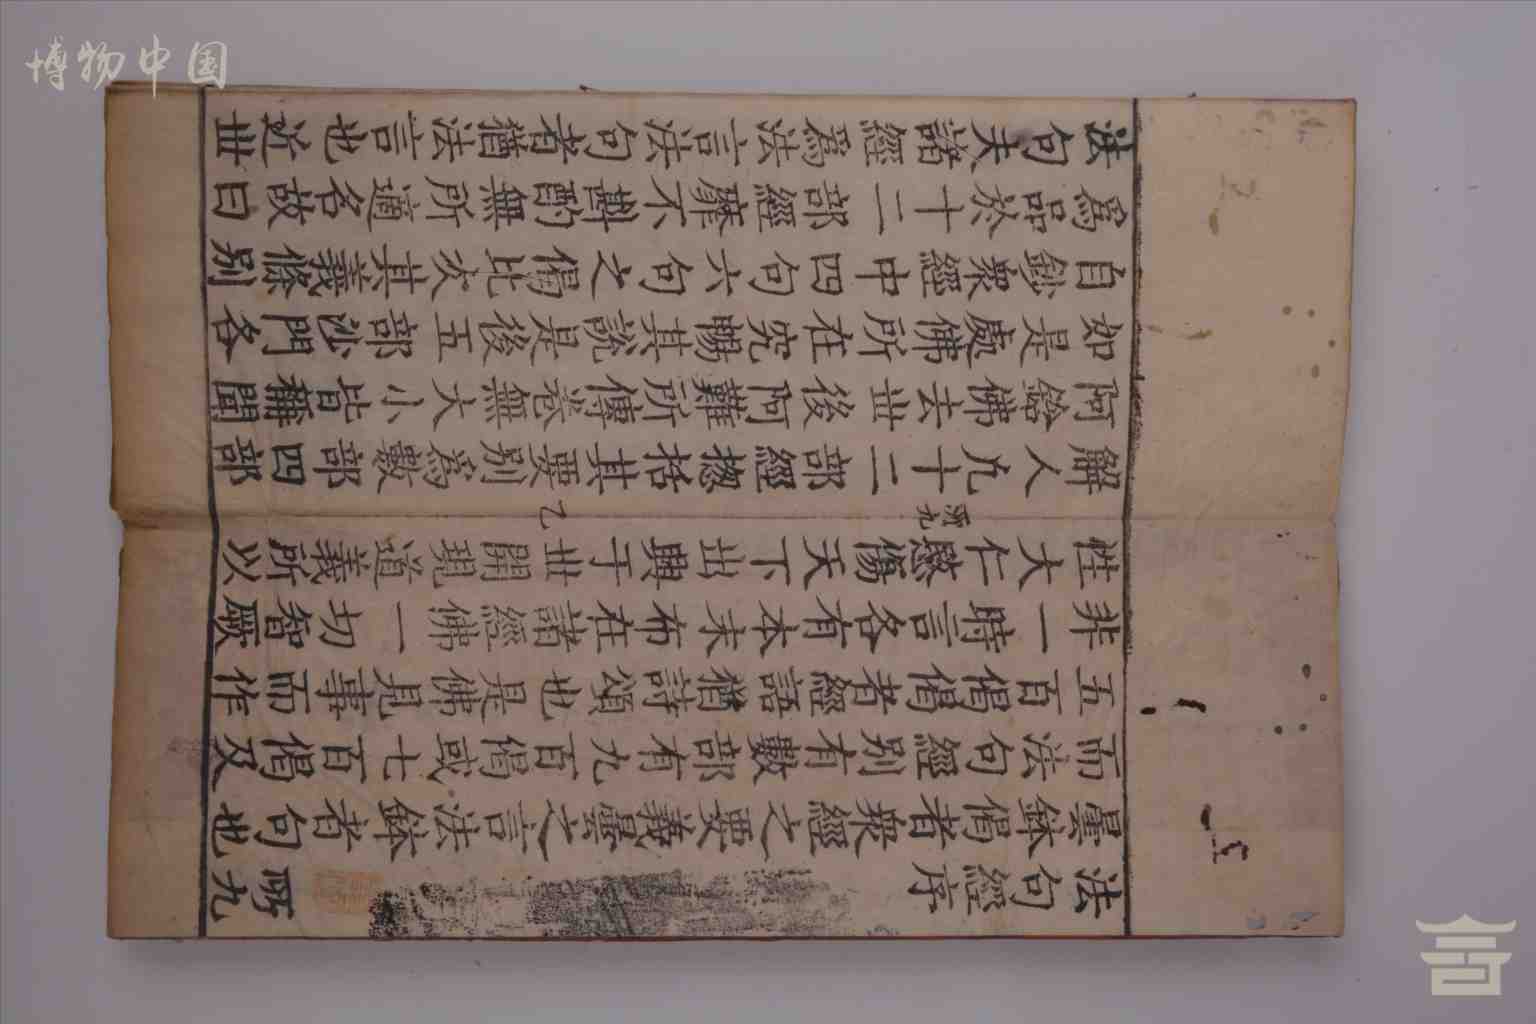 博物中国
法句經序
曇鉢偈者衆經之要義曇之言法鉢者句也
而法句經別有數部有九百偈或七百偈及
五百偈偈者經語猶詩頌也是佛見事而作
非一時言各有本末布在諸經佛一切智厥
性大仁愍傷天下出興于丗開現道義所以
解人凡十二部經惣括其要別爲數部四部
阿鋡佛去丗後阿難所傳卷無大小皆稱聞
如是處佛所在究暢其說是後五部沙門各
自鈔衆經中四句六句之偈比次其義條別
爲品於十二部經靡不斟酌無所適名故曰
法句夫諸經爲法言法句者猶法言也近丗